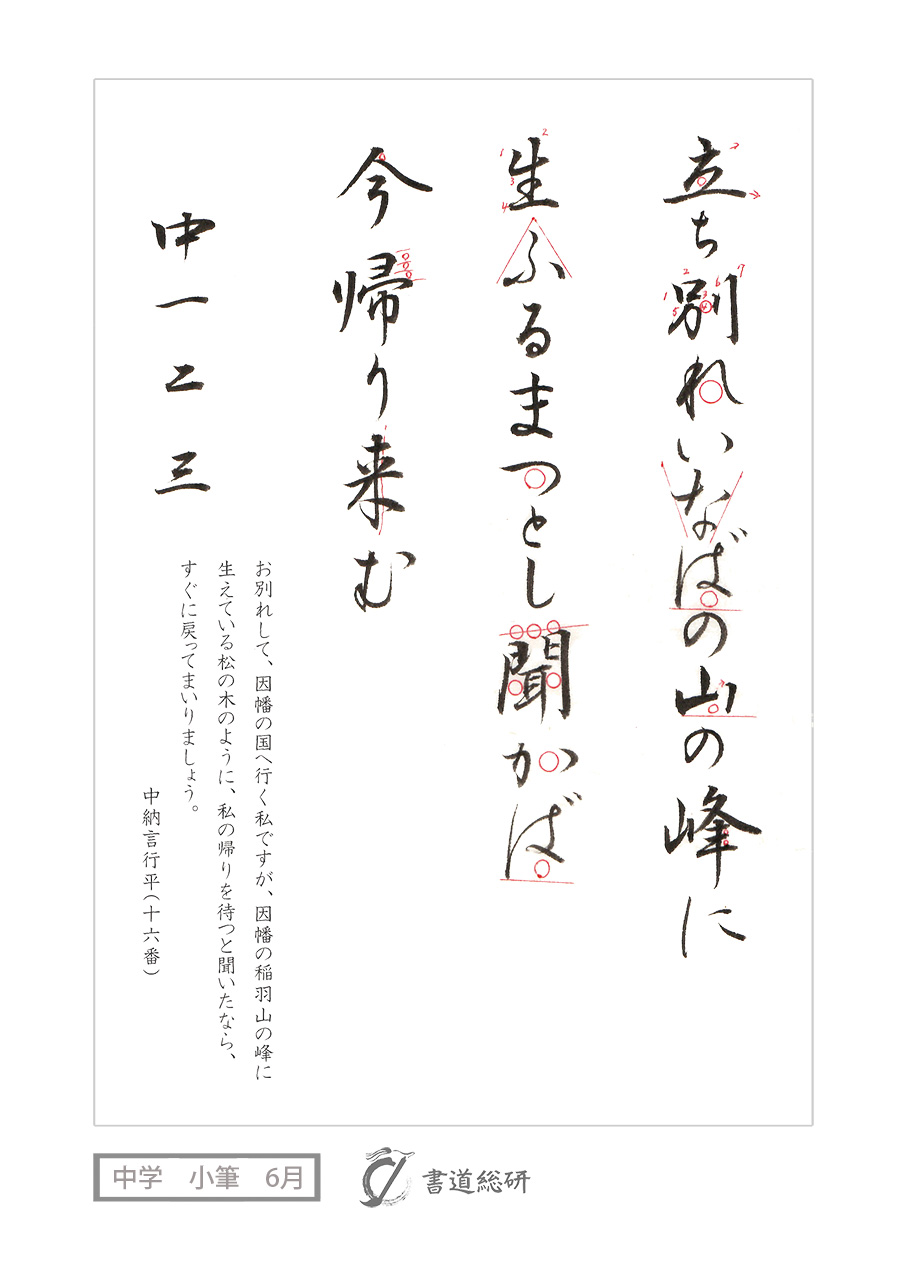 立ち別れいなばの山の峰に
生ふるまつとし聞かば
今帰り来む
中一二三
お別れして、因幡の国へ行く私ですが、因幡の稲羽山の峰に
生えている松の木のように、私の帰りを待つと聞いたなら、
すぐに戻ってまいりましょう。
中納言行平(十六番)
中学 小筆 6月
書道総研